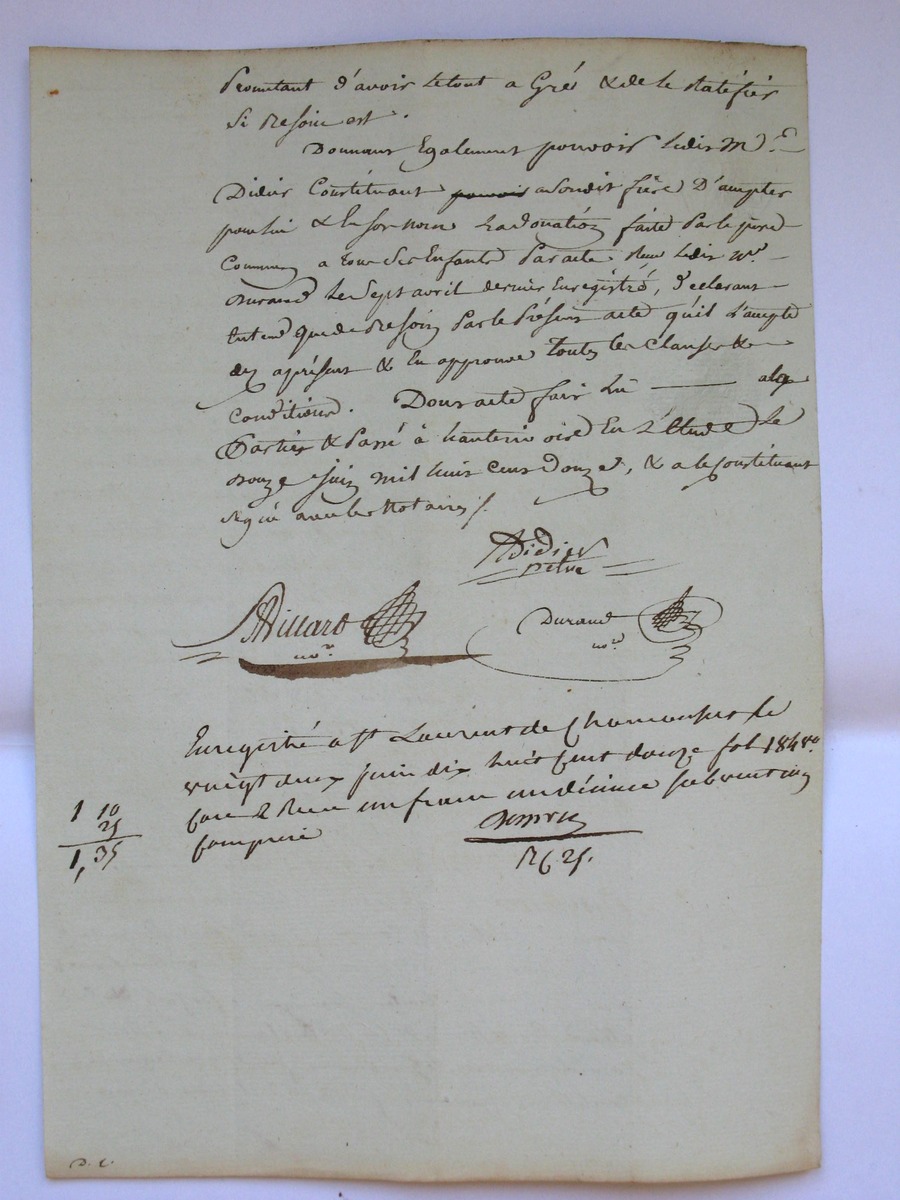 Promettant d'avoir le tout a Gré & de le Ratéfier
Si Besoin est.
Donnant Egalement pouvoir ledit Mr
Didier Constituant pouvoir a Sondit frère D'acepter
pour lui & En son nom la donation faite Par le père
Commun a tous Ses Enfants Par acte Reçu ledit Mre
Durand le Sept avril dernier Enregistré, declarant
tant que de Besoin Par le Présent acte qu'il l'acepte
des aprésent & En approuve toutes les Clauses &
Conditions. Dont acte fait Lu aux
Parties & Passé à hauterivoire En l'Etude Le
Douze juin mil huit Cent Douze, & a le Constituant
Signé avec les Notaires /.
Didier
Villard
nore
Durand
nore
Enregistré a St Laurent de Chamousset le
vingt deux juin dix huit Cent douze fol 184 vo
Case 2 Reçu un franc un décime subvention
Comprise
1 10
25
1, 35
R 25.
D. C.